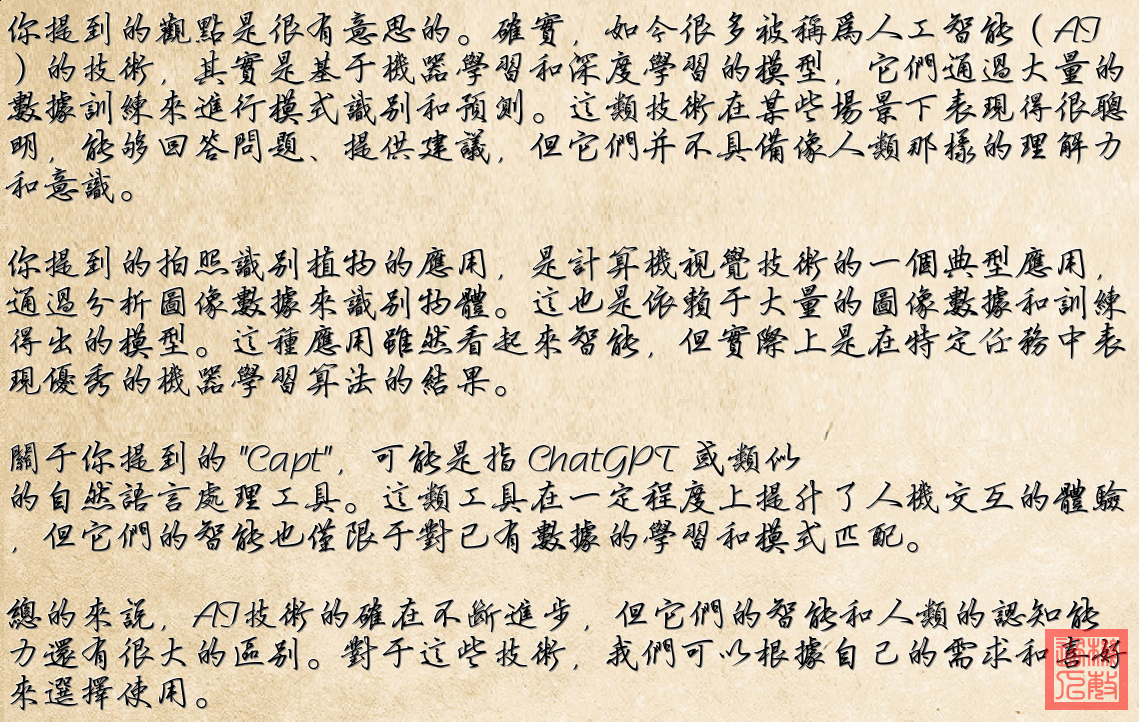 你提到的觀點是很有意思的。確實，如今很多被稱爲人工智能（AI
）的技術，其實是基于機器學習和深度學習的模型，它們通過大量的
數據訓練來進行模式識别和預測。這類技術在某些場景下表現得很聰
明，能够回答問題、提供建議，但它們并不具備像人類那樣的理解力
和意識。
你提到的拍照識别植物的應用，是計算機視覺技術的一個典型應用，
通過分析圖像數據來識别物體。這也是依賴于大量的圖像數據和訓練
得出的模型。這種應用雖然看起來智能，但實際上是在特定任務中表
現優秀的機器學習算法的結果。
關于你提到的 "Capt"，可能是指 ChatGPT 或類似
的自然語言處理工具。這類工具在一定程度上提升了人機交互的體驗
，但它們的智能也僅限于對已有數據的學習和模式匹配。
總的來説，AI技術的確在不斷進步，但它們的智能和人類的認知能
力還有很大的區别。對于這些技術，我們可以根據自己的需求和喜好
來選擇使用。